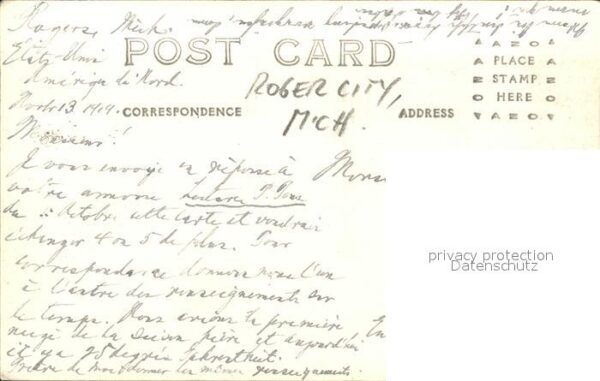 Rogers, Mich.
États-Unis
Amérique du Nord.
Novbr 13. 1919.
POST CARD
CORRESPONDENCE
ADDRESS
ROGER CITY,
MCH.
AZO
PLACE
STAMP
HERE
AZO
Monsieur!
Je vous envoye en réponse à
votre annonce
du Octobre cette carte et voudrais
échanger 4 ou 5 de plus. Pour
correspondance donnons nous l'un
à l'autre des renseignements sur
le temps. Nous avions la première
neige de la saison hier et aujourd'hui
il y a 25 degrés fahrenheit.
Prière de me donner les mêmes renseignements.
Mons
privacy protection
Datenschutz